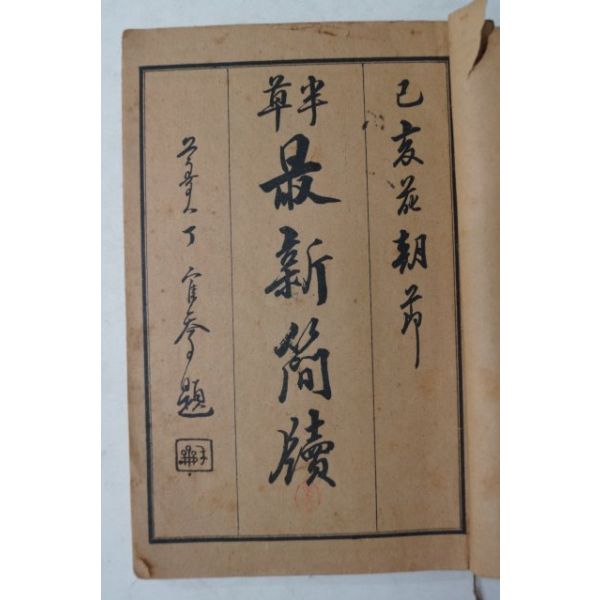 己亥花朝節
半草
最新簡牘
丁 題